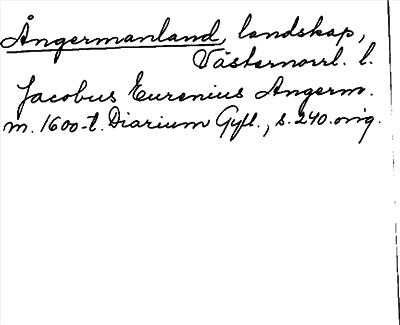 Ångermanland, landskap,
Västernorrl. l.
Jacobus Eurenius Angerm.
m. 1600-t. Diarium Gyll., s. 240. orig.